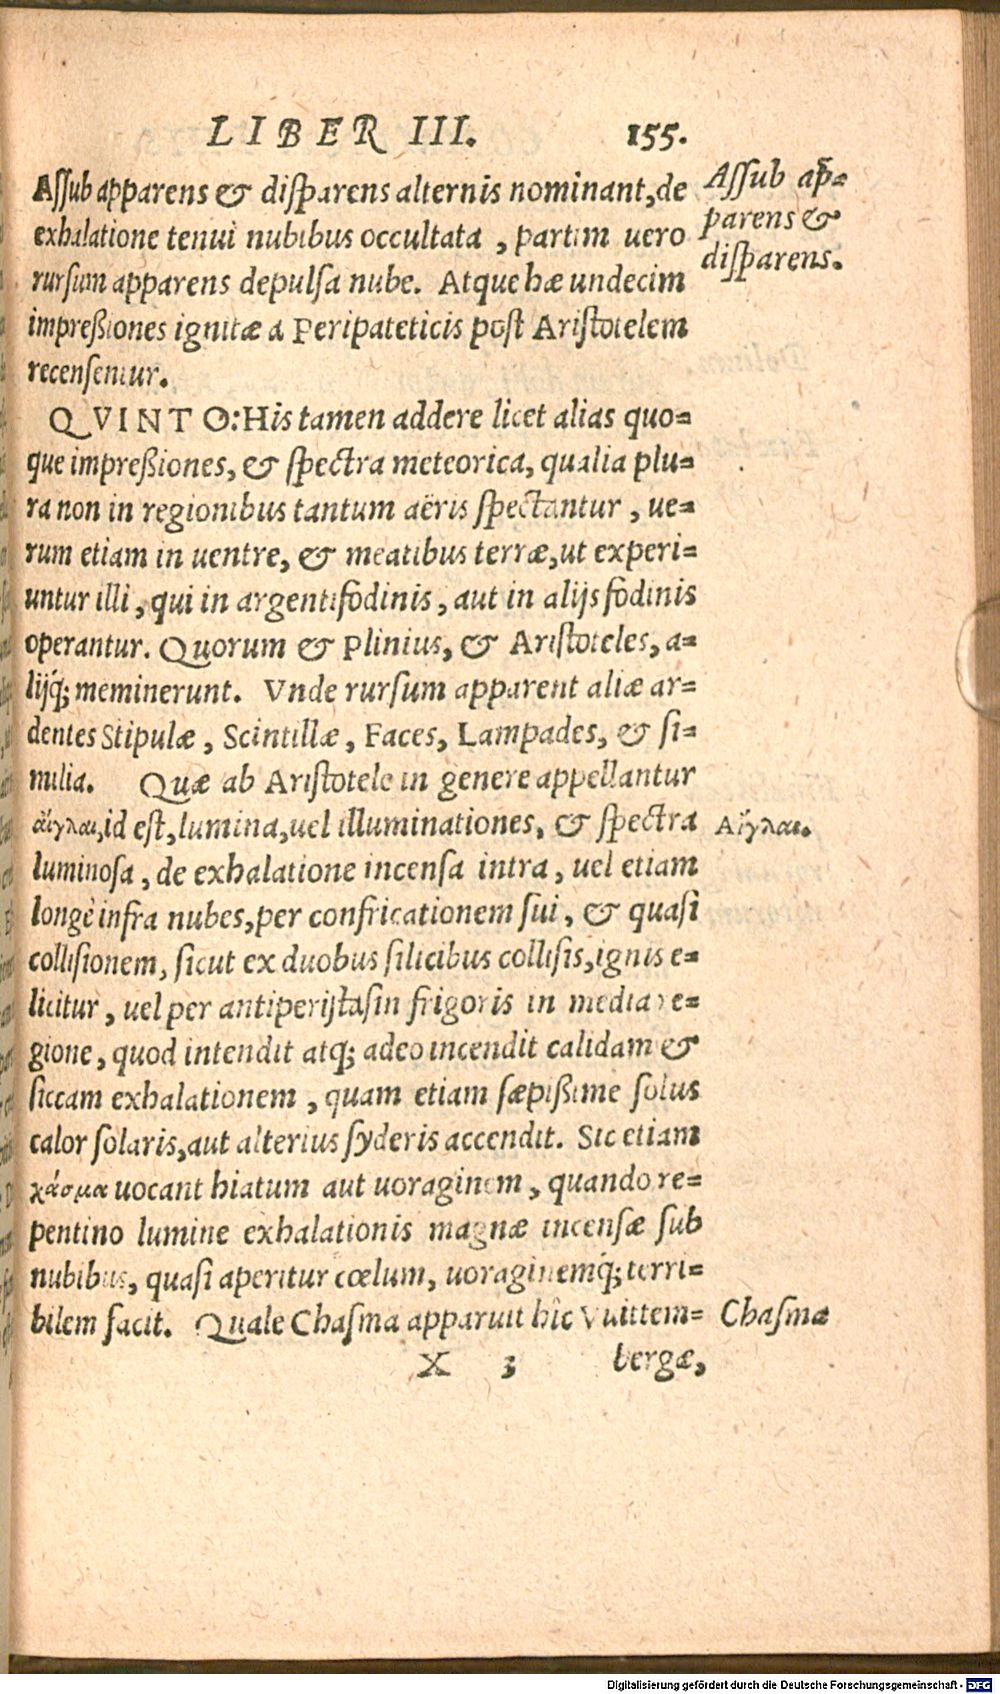 LIBER III. 155.
Assub apparens & disparens alternis nominant, de
exhalatione tenui nubibus occultata, partim uero
rursum apparens depulsa nube. Atque hæ undecim
impreßiones ignitæ a Peripateticis post Aristotelem
recensentur.
Assub ap-
parens &
disparens.
QVINTO: His tamen addere licet alias quo-
que impreßiones, & spectra meteorica, qualia plu-
ra non in regionibus tantum aëris spectantur, ue-
rum etiam in uentre, & meatibus terræ, ut experi-
untur illi, qui in argentifodinis, aut in alijs fodinis
operantur. Quorum & Plinius, & Aristoteles, a-
lijq́; meminerunt. Vnde rursum apparent aliæ ar-
dentes Stipulæ, Scintillæ, Faces, Lampades, & si-
milia. Quæ ab Aristotele in genere appellantur
αἴγλαι, id est, lumina, uel illuminationes, & spectra
Αἴγλαι.
luminosa, de exhalatione incensa intra, uel etiam
longè infra nubes, per confricationem sui, & quasi
collisionem, sicut ex duobus silicibus collisis, ignis e-
licitur, uel per antiperistasin frigoris in media re-
gione, quod intendit atq; adeo incendit calidam &
siccam exhalationem, quam etiam sæpißime solus
calor solaris, aut alterius syderis accendit. Sic etiam
χάσμα uocant hiatum aut uoraginem, quando re-
pentino lumine exhalationis magnæ incensæ sub
nubibus, quasi aperitur cœlum, uoraginemq́; terri-
bilem facit. Quale Chasma apparuit hîc Vuittem-
Chasma
X 3 bergæ,
Digitalisierung gefördert durch die Deutsche Forschungsgemeinschaft - DFG